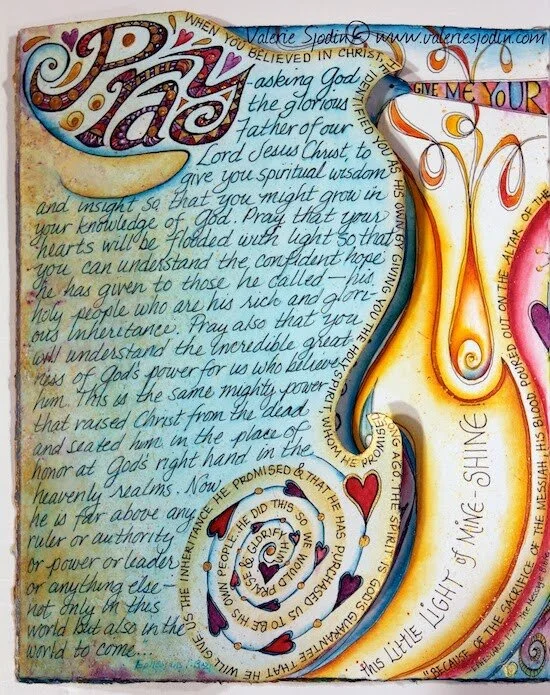 Valerie Sjodin © www.valeriesjodin.com
Pray
-asking God,
the glorious
Father of our
Lord Jesus Christ, to
give you spiritual wisdom
and insight so that you might grow in
your knowledge of God. Pray that your
hearts will be flooded with light so that
you can understand the confident hope
he has given to those he called—his
holy people who are his rich and glori-
ous inheritance. Pray also that you
will understand the incredible great-
ness of God's power for us who believe
him. This is the same mighty power
that raised Christ from the dead
and seated him in the place of
honor at God's right hand in the
heavenly realms. Now
he is far above any
ruler or authority
or power or leader
or anything else—
not only in this
world but also in the
world to come...
WHEN YOU BELIEVED IN CHRIST, HE IDENTIFIED YOU AS HIS OWN BY GIVING YOU THE HOLY SPIRIT, WHOM HE PROMISED LONG AGO. THE SPIRIT IS GOD'S GUARANTEE THAT HE WILL GIVE US THE INHERITANCE HE PROMISED & THAT HE HAS PURCHASED US TO BE HIS OWN PEOPLE. HE DID THIS SO WE WOULD PRAISE & GLORIFY HIM
GIVE ME YOUR
This LITTLE LIGHT of MINE - SHINE
"BECAUSE OF THE SACRIFICE OF THE MESSIAH, HIS BLOOD POURED OUT ON THE ALTAR OF THE